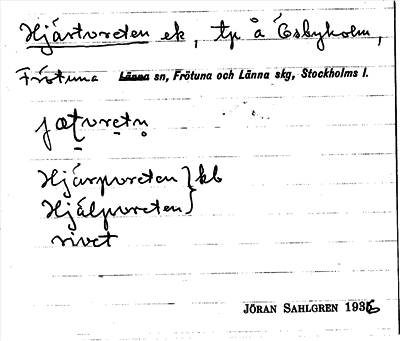 Hjärtvreten ek, tp å Ösbyholm,
Frötuna Länna sn, Frötuna och Länna skg, Stockholms l.
jætvretn̥
Hjärpvreten } kb
Hjälpvreten }
rivet
JÖRAN SAHLGREN 1936